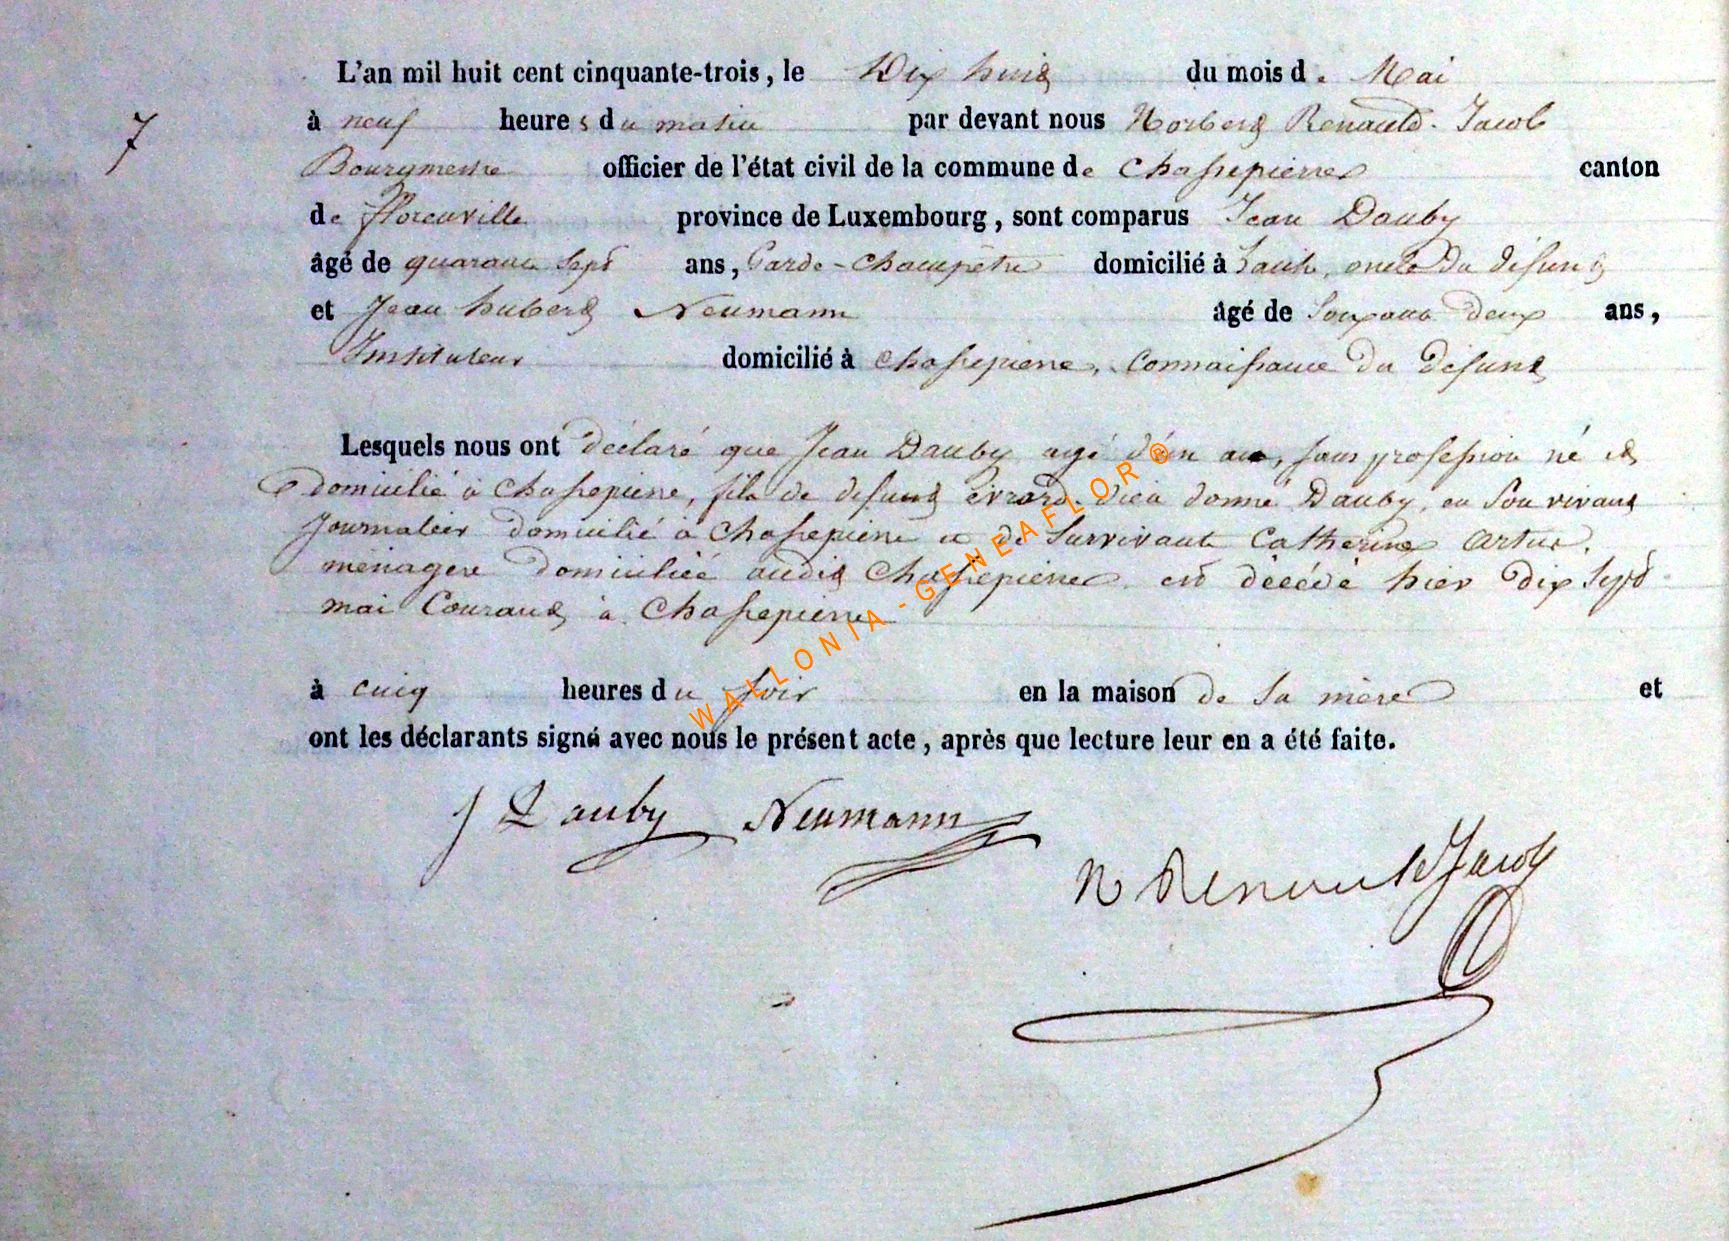 L'an mil huit cent cinquante-trois, le Dix huit du mois de Mai
7
à neuf heures du matin par devant nous Norbert Renauld-Jacob
Bourgmestre officier de l'état civil de la commune de Chassepierre canton
de fflorenville province de Luxembourg, sont comparus Jean Dauby
âgé de quarante sept ans, Garde-Champêtre domicilié à oncle du défunt
et Jean hubert Neumann âgé de Soixante deux ans,
Instituteur domicilié à Chassepierre, Connaissance du défunt
Lesquels nous ont déclaré que Jean Dauby agé d'un an, sans profession né et
domicilié à Chassepierre, fils de defunt évrard dieu donné Dauby, en Son vivant
Journalier domicilié à Chassepierre et de Survivante Catherine Artus,
ménagere domiciliée audit Chassepierre est décédé hier dix Sept
mai Courant à Chassepierre
à cinq heures du Soir en la maison de Sa mère et
ont les déclarants signé avec nous le présent acte, après que lecture leur en a été faite.
J Dauby Neumann
N Renauld Jacob
WALLONIA - GENEAFLOR ®